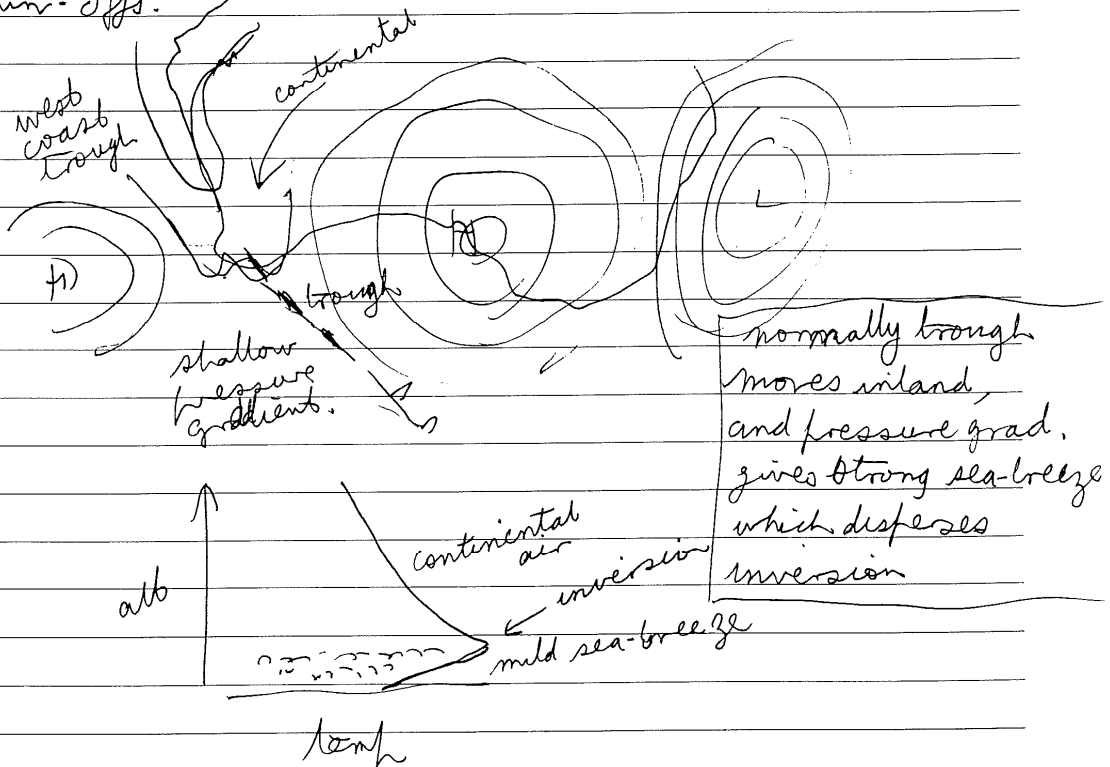 continental
west
coast
trough
H
H
L
trough
shallow
pressure
gradient.
normally trough
moves inland,
and pressure grad.
gives strong sea-breeze
which disperses
inversion
continental
air
inversion
alt
mild sea-breeze
temp